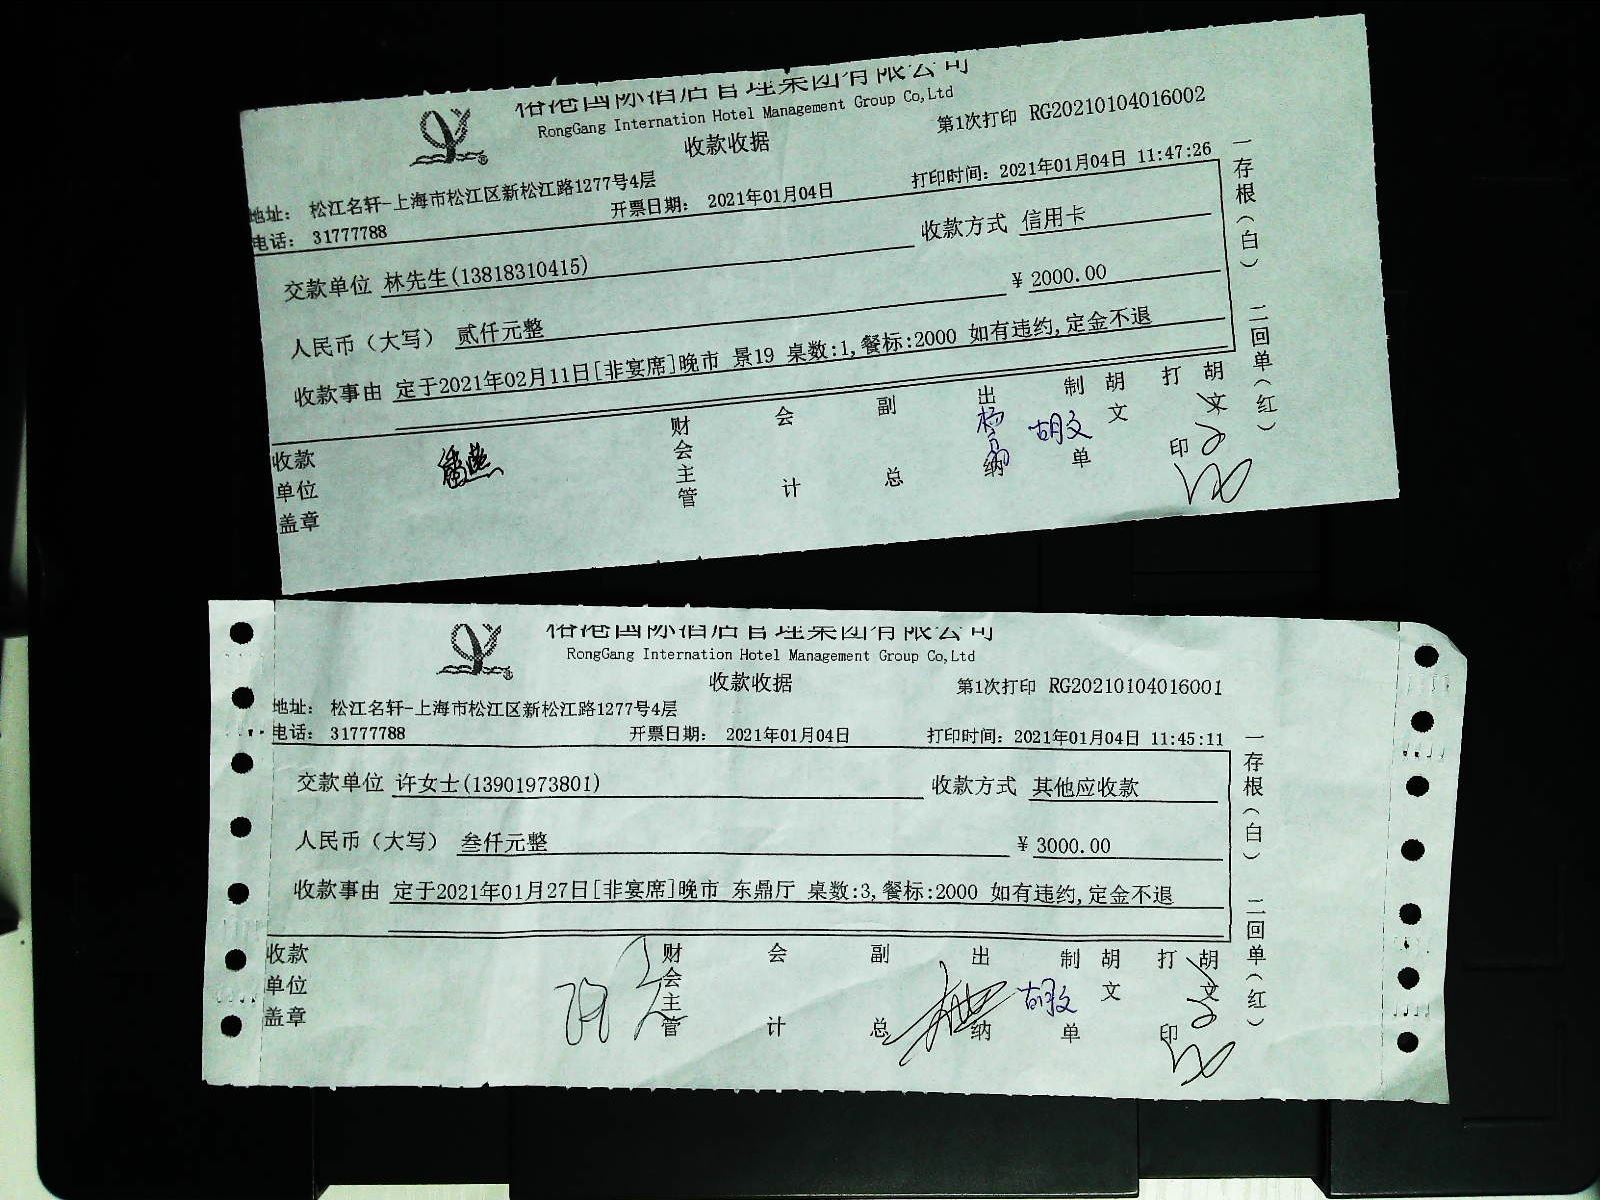 港国际酒店管理集团有限公司
RongGang Internation Hotel Management Group Co,Ltd
收款收据
第1次打印 RG20210104016002
地址： 松江名轩-上海市松江区新松江路1277号4层
电话： 31777788
开票日期： 2021年01月04日
打印时间：2021年01月04日 11:47:26
交款单位 林先生(13818310415)
收款方式 信用卡
人民币（大写） 贰仟元整
¥ 2000.00
收款事由 定于2021年02月11日[非宴席]晚市 景19 桌数:1,餐标:2000 如有违约,定金不退
收款单位盖章
财会主管
会计
副总
出纳
制单
胡文
胡文
打印
胡文
一存根（白） 二回单（红）
港国际酒店管理集团有限公司
RongGang Internation Hotel Management Group Co,Ltd
收款收据
第1次打印 RG20210104016001
地址： 松江名轩-上海市松江区新松江路1277号4层
电话： 31777788
开票日期： 2021年01月04日
打印时间：2021年01月04日 11:45:11
交款单位 许女士(13901973801)
收款方式 其他应收款
人民币（大写） 叁仟元整
¥ 3000.00
收款事由 定于2021年01月27日[非宴席]晚市 东鼎厅 桌数:3,餐标:2000 如有违约,定金不退
收款单位盖章
财会主管
会计
副总
出纳
制单
胡文
胡文
打印
胡文
一存根（白） 二回单（红）